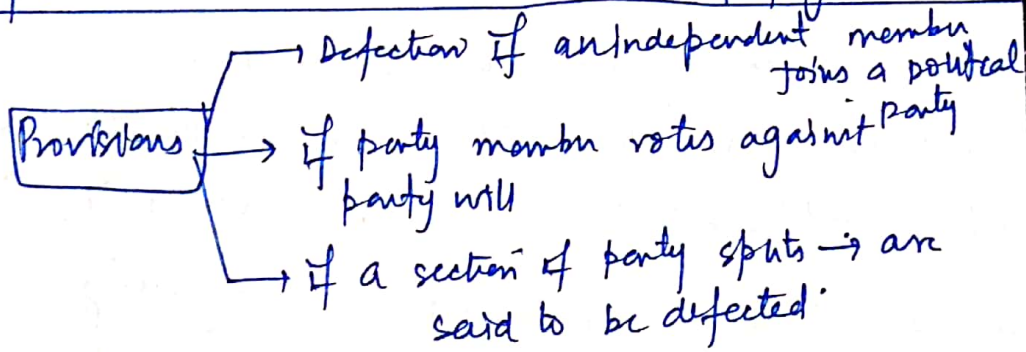 Defection if an Independent member
joins a political
Party
Provisions
if party member votes against
party will
if a section of party splits → are
said to be defected.